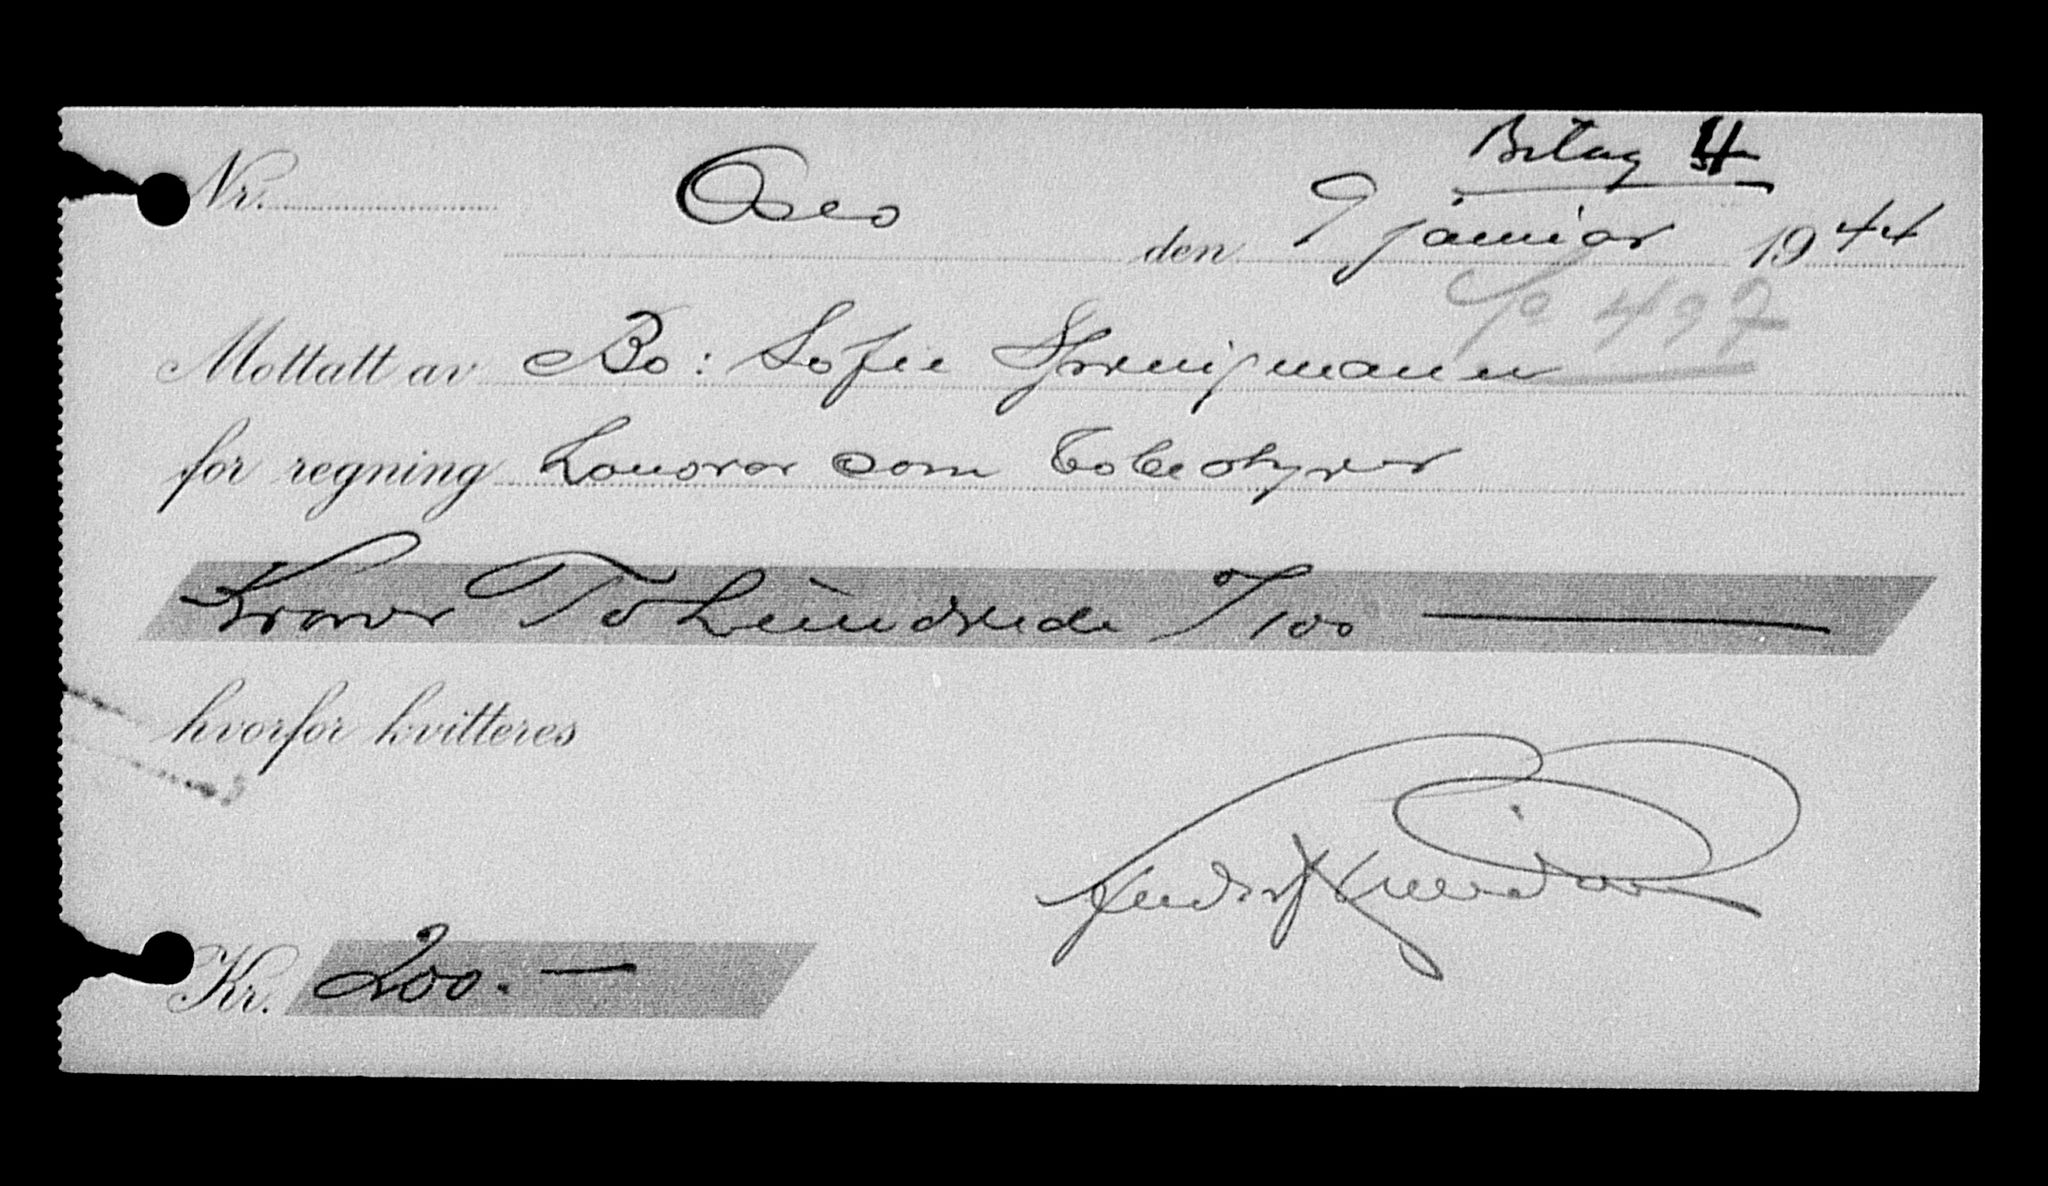 Bilag 4
Nr. Oslo den 9 januar 1944
497
Mottatt av Bo: Sofie
for regning Honorar som Bobestyrer
Kroner To hundrede 0/100
hvorfor kvitteres
Kr. 200.—